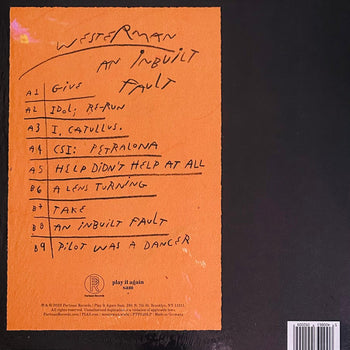 WESTERMAN
AN INBUILT
FAULT
A1 GIVE
A2 IDOL; RE-RUN
A3 I, CATULLUS.
A4 CSI: PETRALONA
A5 HELP DIDN'T HELP AT ALL
B6 A LENS TURNING
B7 TAKE
B8 AN INBUILT FAULT
B9 PILOT WAS A DANCER
R
Partisan Records
play it again
sam